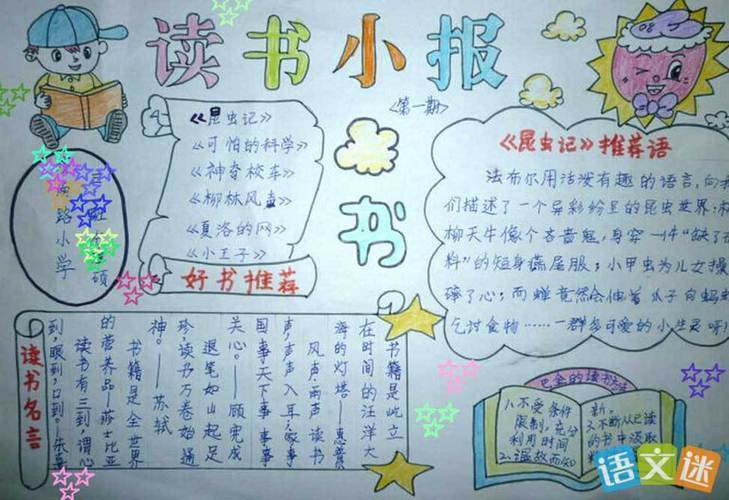 读书小报
<第一期>
《昆虫记》
《可怕的科学》
《神奇校车》
《柳林风声》
《夏洛的网》
《小王子》
好书推荐
书
路小学
硕
《昆虫记》推荐语
法布尔用活泼有趣的语言,向我
们描述了一个异彩纷呈的昆虫世界:
柳天牛像个吝啬鬼,身穿一件"缺了布
料"的短身燕尾服;小甲虫为儿女操
碎了心;而蝉竟然会伸着爪子向蚂蚁
乞讨食物……一群多可爱的小生灵呀!
读书名言
书籍是屹立
在时间的汪洋大
海的灯塔——惠普
风声雨声读书
声,声声入耳;家事
国事天下事事事
关心。——顾宪成
退笔如山起足
珍,读书万卷始通
神。——苏轼
书籍是全世界
的营养品——莎士比亚
读书有三到,谓心
到,眼到,口到。——朱熹
巴金的读书方法
1.不受条件
限制,充分
利用时间
2.温故而知
新。
3.不断从已读
的书中汲取
语文迷